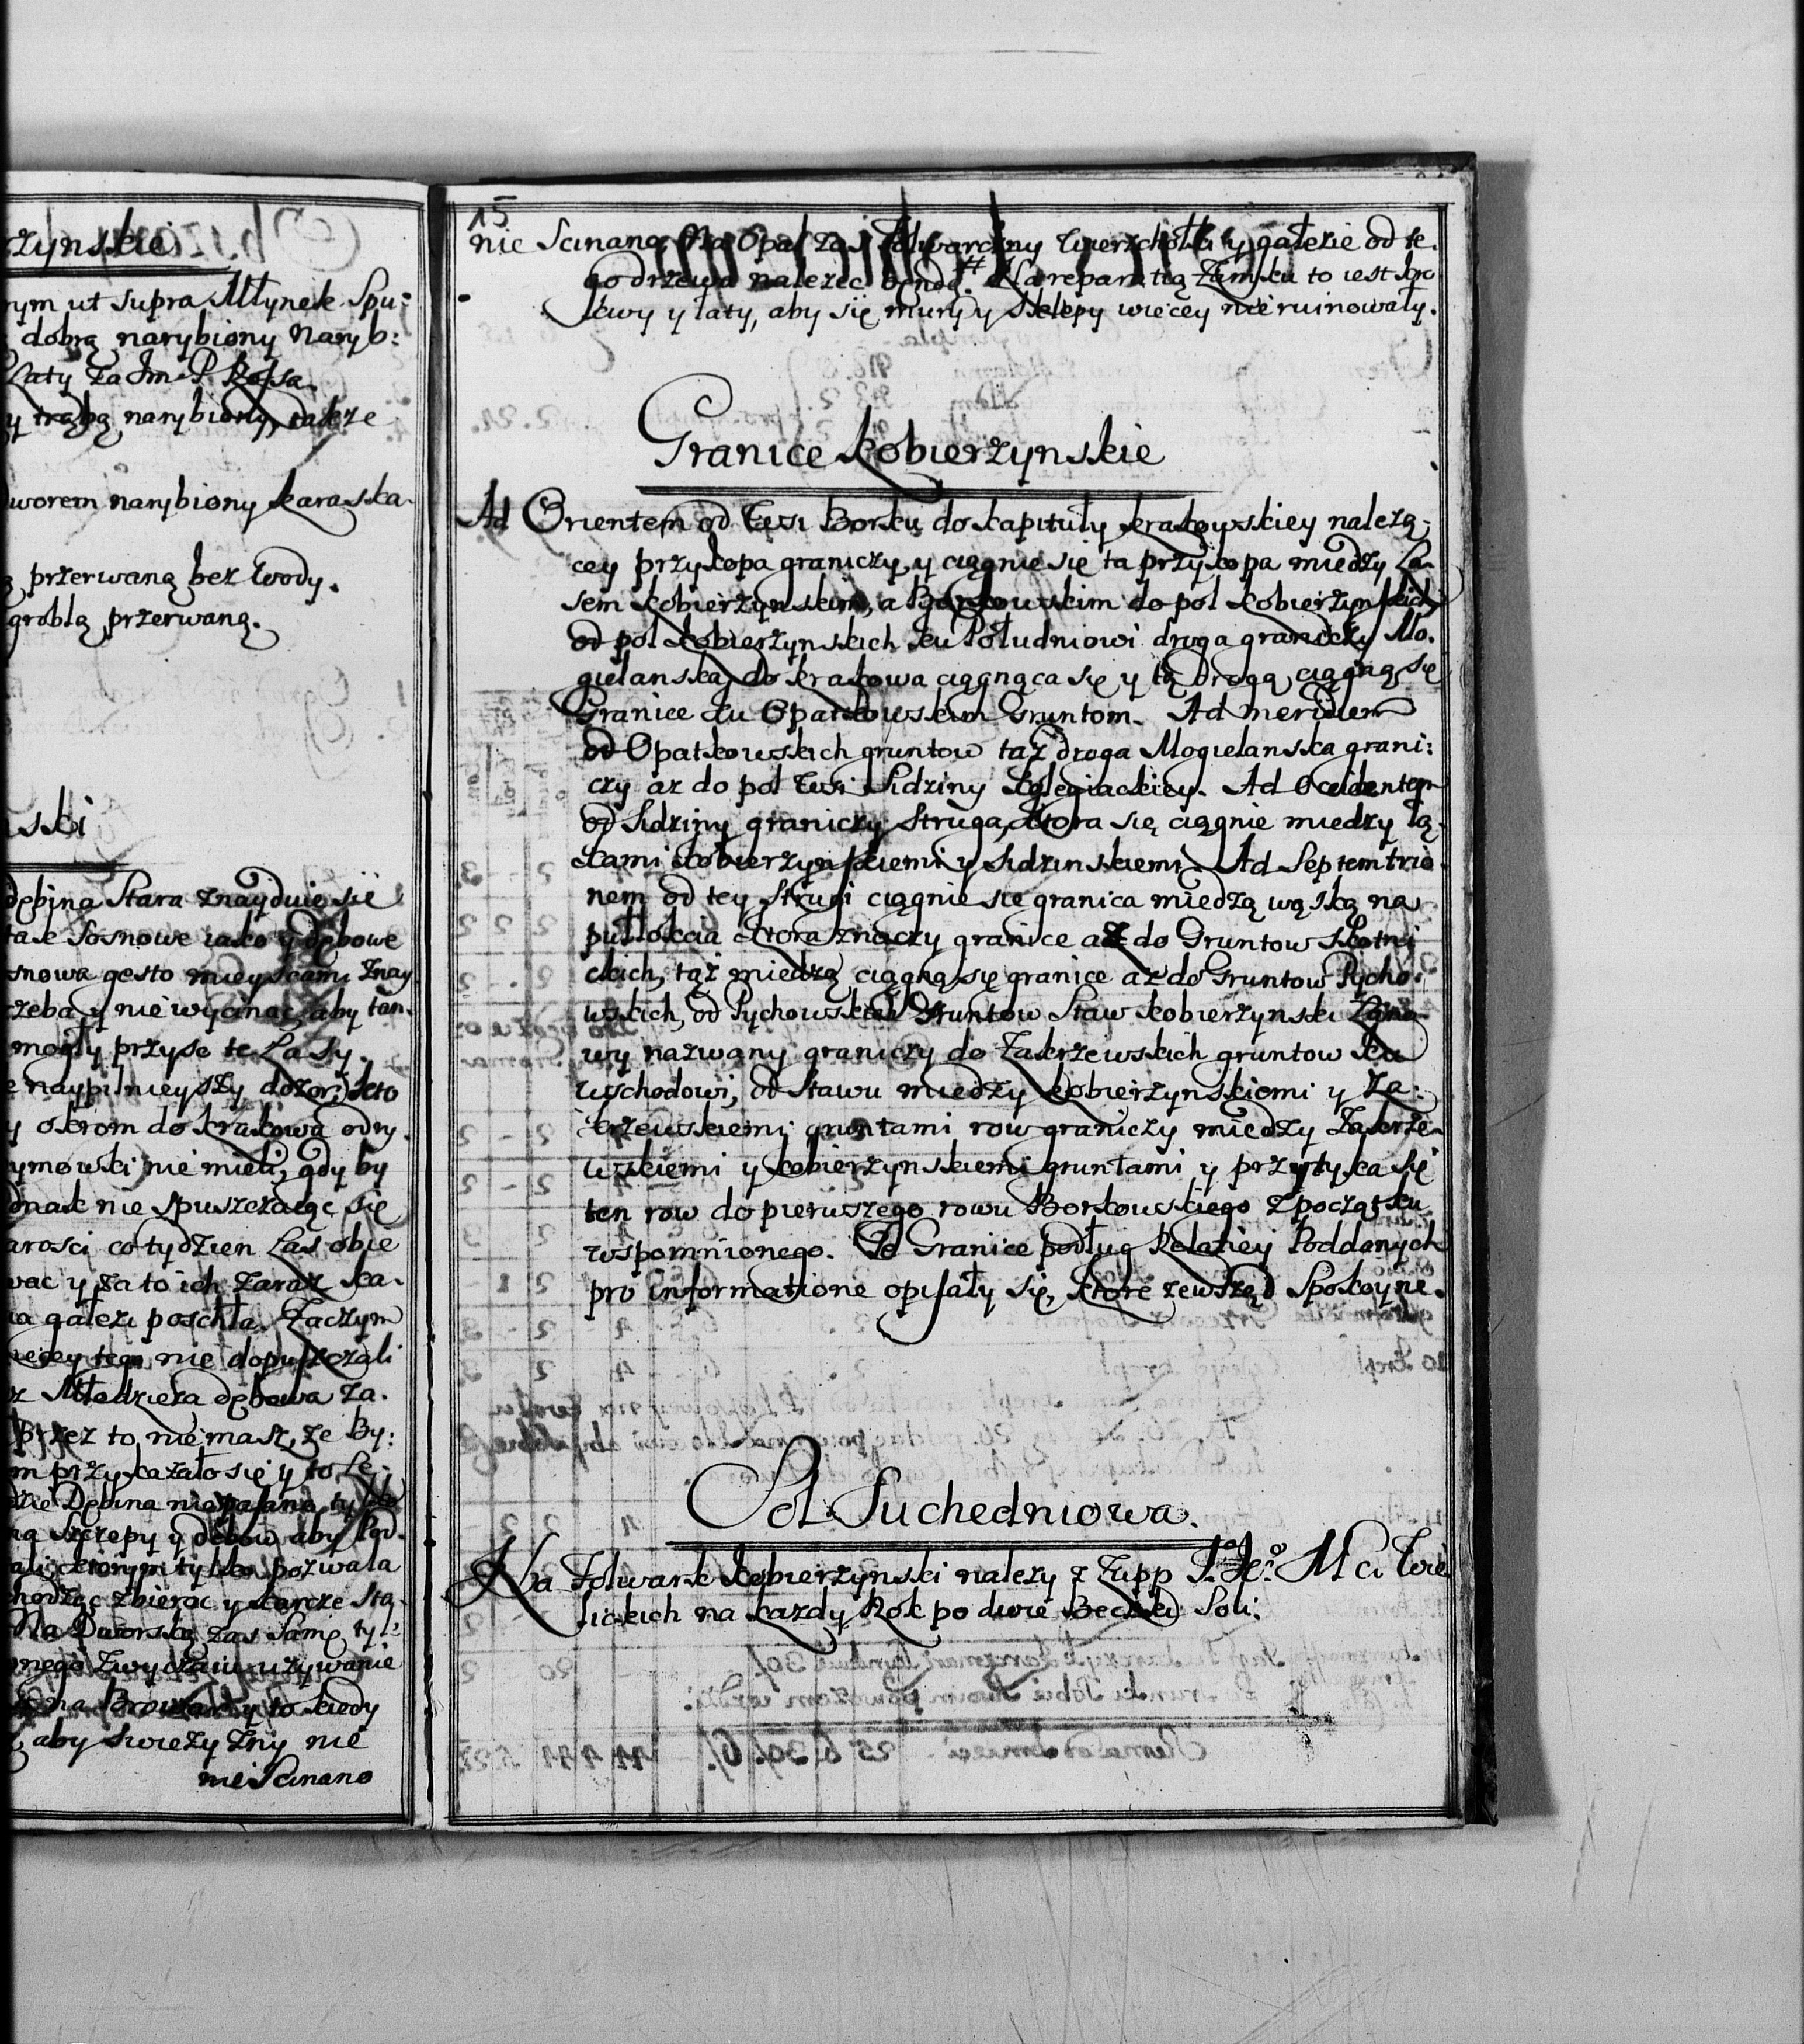 rżynskie
nym ut supra Młynek Spu:
dobrą narybiony Naryb:
Laty Za Jm P. Rossa.
y trąbą narybiony, także
worem narybiony karaska.
przerwaną bez wody.
groblą przerwaną.
ski
dębina Stara znayduie się
tak Sosnowe iako y dębowe
snowa gesto mieyscami znay
rzeba y nie wycinac, aby tam.
mogły przysc te Lasy.
naypilnieyszy dozor; kto
y okrom do krakowa odry.
ymowski nie mieli, gdy by
dnak nie spuszczaiąc się
arosci co tydzien Las obie
wac y za to ich zaraz ka.
ia gałezi poschła. Zaczym
iecey tego nie dopuszczali
z Młodzieza dębowa za.
Przez to, nie masz, że By:
m przykazało się y to Le.
dzie Dębina
na Szczepy y dębow aby Pod.
ali, ktorym tylko pozwala
hodząc zbierac y karcze Sta.
Na Dworską zas samę tyl:
nego zwyczaiu używanie
na Browary to kiedy
aby swieży zny nie
nie Scinano
15
nie Scinano, Na Opał zas folwarczny wierzchołki y gałezie od te.
go drzewa nalezec będąd. # Na reparatią Zamku to iest kro
kwy y laty, aby się mury y sklepy wiecey nie ruinowały.
Granice kobierżynskie
Ad Orientem od Wsi Borku do kapituły krakowskiey nalezą:
cey przykopa graniczy, y ciągnie się ta przykopa miedzy La
sem kobierżynskim, a Borkowskim do pol kobierżynskich
od pol kobierżynskich ku Południowi droga graniczy Mo.
gielanska, do krakowa ciągnąca się y tą drogą ciągną się
Granice ku Opatkowskim Gruntom. Ad meridiem
od Opatkowskich gruntow taż droga Mogielanska grani:
czy az do pol Wsi Sidziny kolegiackiey. Ad Occidentem
od Sidziny graniczy Struga, ktora się ciągnie miedzy łą.
kami kobierżynskiemi y Sidzinskiemi. Ad Septemtrio.
nem od tey Strugi ciągnie sie granica miedzą wąską na
pułłokcia ktora znaczy granice aż do Gruntow Skotni
ckich, tąż miedzą ciągną się granice az do Gruntow Pycho:
wskich, od Pychowskich Gruntow Staw kobierżynski
wy nazwany graniczy do Zakrzewskich gruntow ku
wschodowi, od Stawu miedzy kobierżynskiemi y Za:
krzewskiemi gruntami row graniczy miedzy Zakrże.
wskiemi y kobierżynskiemi gruntami y przytyka się
ten row do pierwszego rowu Borkowskiego z początku
wspomnionego. Te Granice podług Relatiey Poddanych
pro informatione opisały się, ktore zewsząd Spokoyne.
Sol Suchedniowa.
Na Folwark kobierżynski nalezy z Zupp J. K. Mci Wie
lickich na kazdy Rok po dwie Beczki Soli.